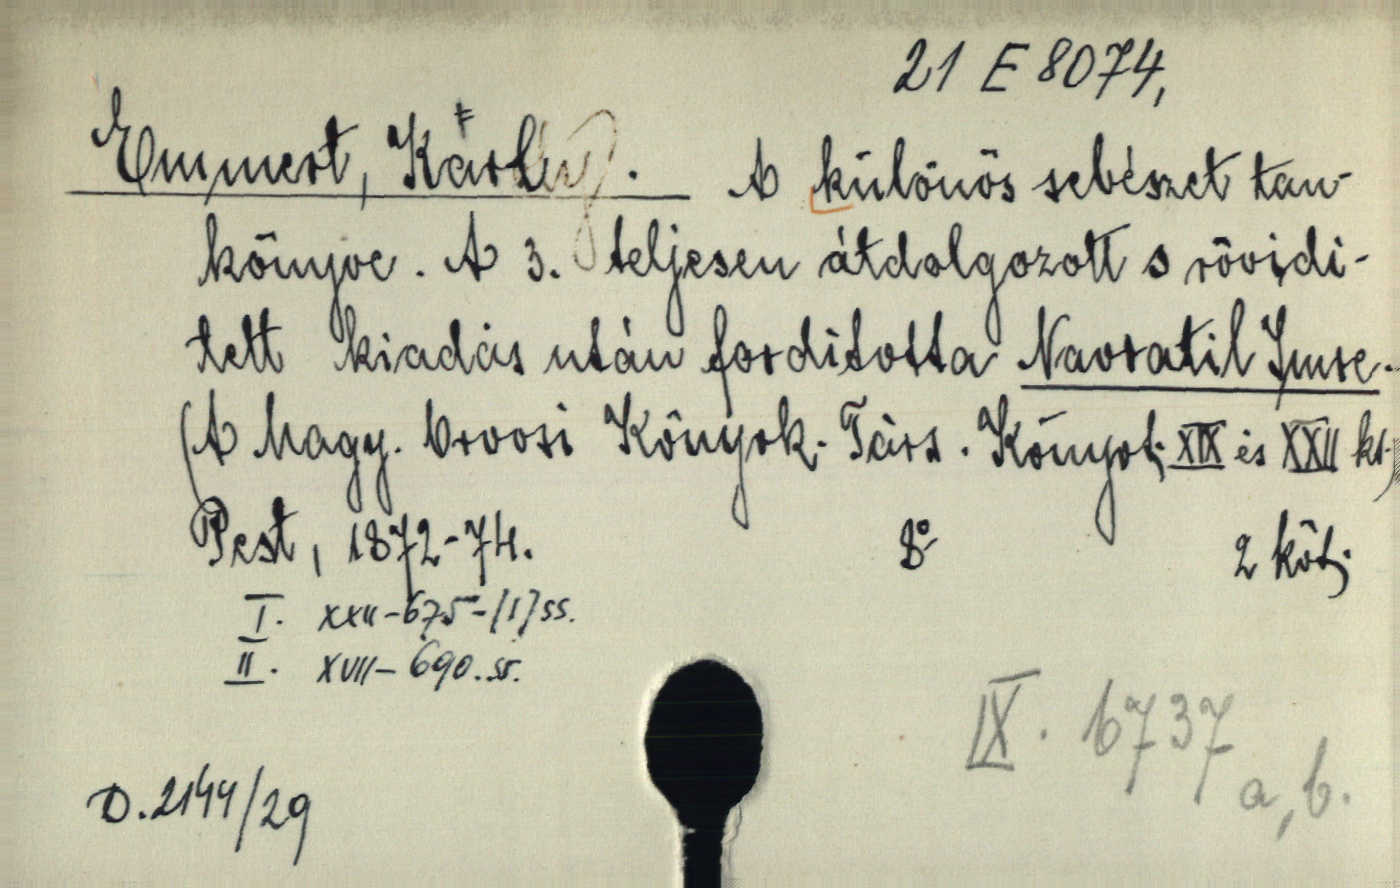 21 E 8074,
Emmert, Károly. A különös sebészet tan-
könyve. A 3. teljesen átdolgozott s rövidi-
tett kiadás után forditotta Navratil Imre.
(A Magy. Orvosi Könyvk. Társ. Könyvt. XIX és XXII kt.)
Pest, 1872-74. 8° 2 köt.
I. XXII-675-[1] ss.
II. XVII-690. ss.
IX. 6737
a, b.
D. 2144/29